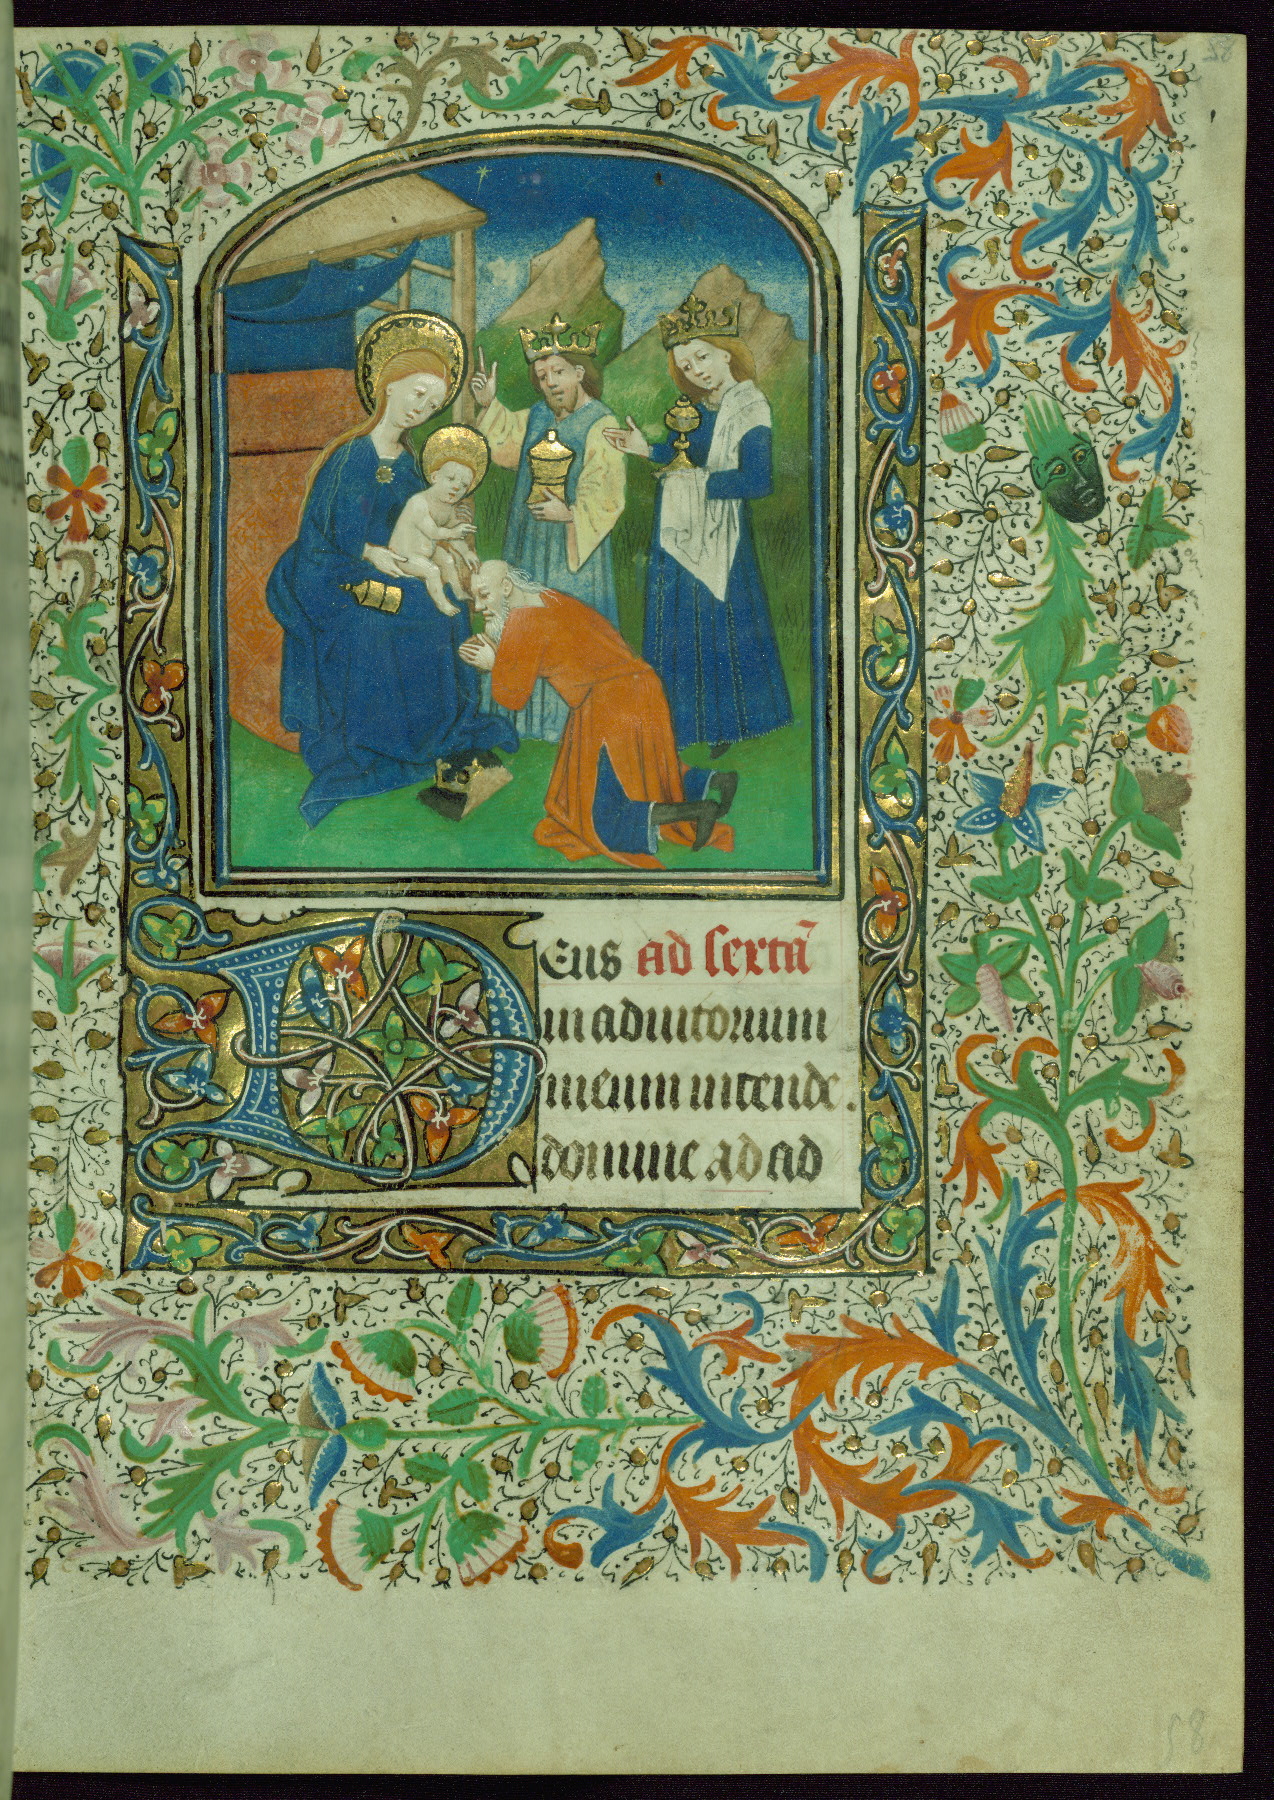 58
Deus ad sextã
in adiutorium
meum intende.
domine ad ad
58